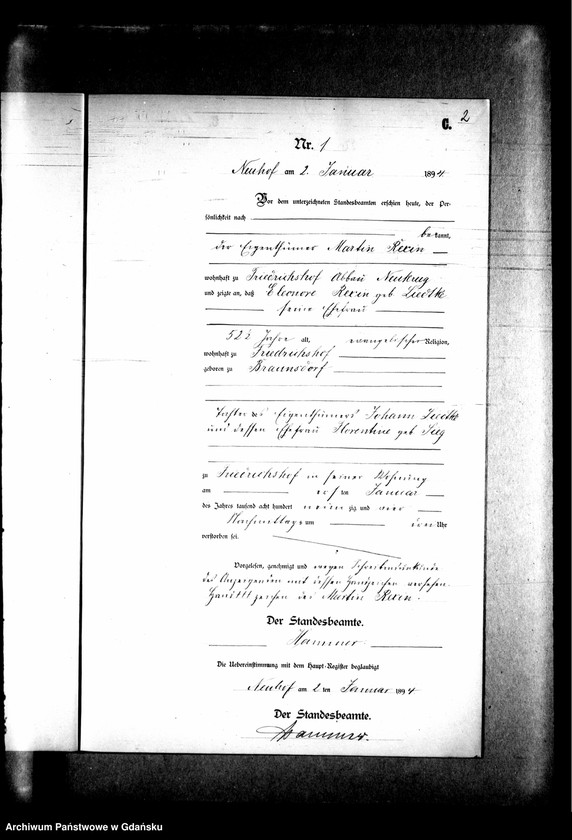 C. 2
Nr. 1
Neuhof am 2. Januar 1894
Vor dem unterzeichneten Standesbeamten erschien heute, der Per-
sönlichkeit nach
bekannt,
der Eigenthümer Martin Rexin
wohnhaft zu Friedrichshof Abbau Neukrug
und zeigte an, daß Eleonore Rexin geb Liedtke
seine Ehefrau
52½ Jahre alt, evangelischer Religion,
wohnhaft zu Friedrichshof
geboren zu Braunsdorf
Tochter des Eigenthümers Johann
und dessen Ehefrau Florentine geb
zu Friedrichshof in seiner Wohnung
am ersten Januar
des Jahres tausend acht hundert neunzig und vier
Nachmittags um Uhr
verstorben sei.
Vorgelesen, genehmigt und wegen Schreibensunkunde
des Anzeigenden mit dessen Handzeichen versehen.
Handzeichen des Martin Rexin.
Der Standesbeamte.
Hammer
Die Uebereinstimmung mit dem Haupt-Register beglaubigt
Neuhof am 2 ten Januar 1894
Der Standesbeamte.
Hammer.
Archiwum Państwowe w Gdańsku